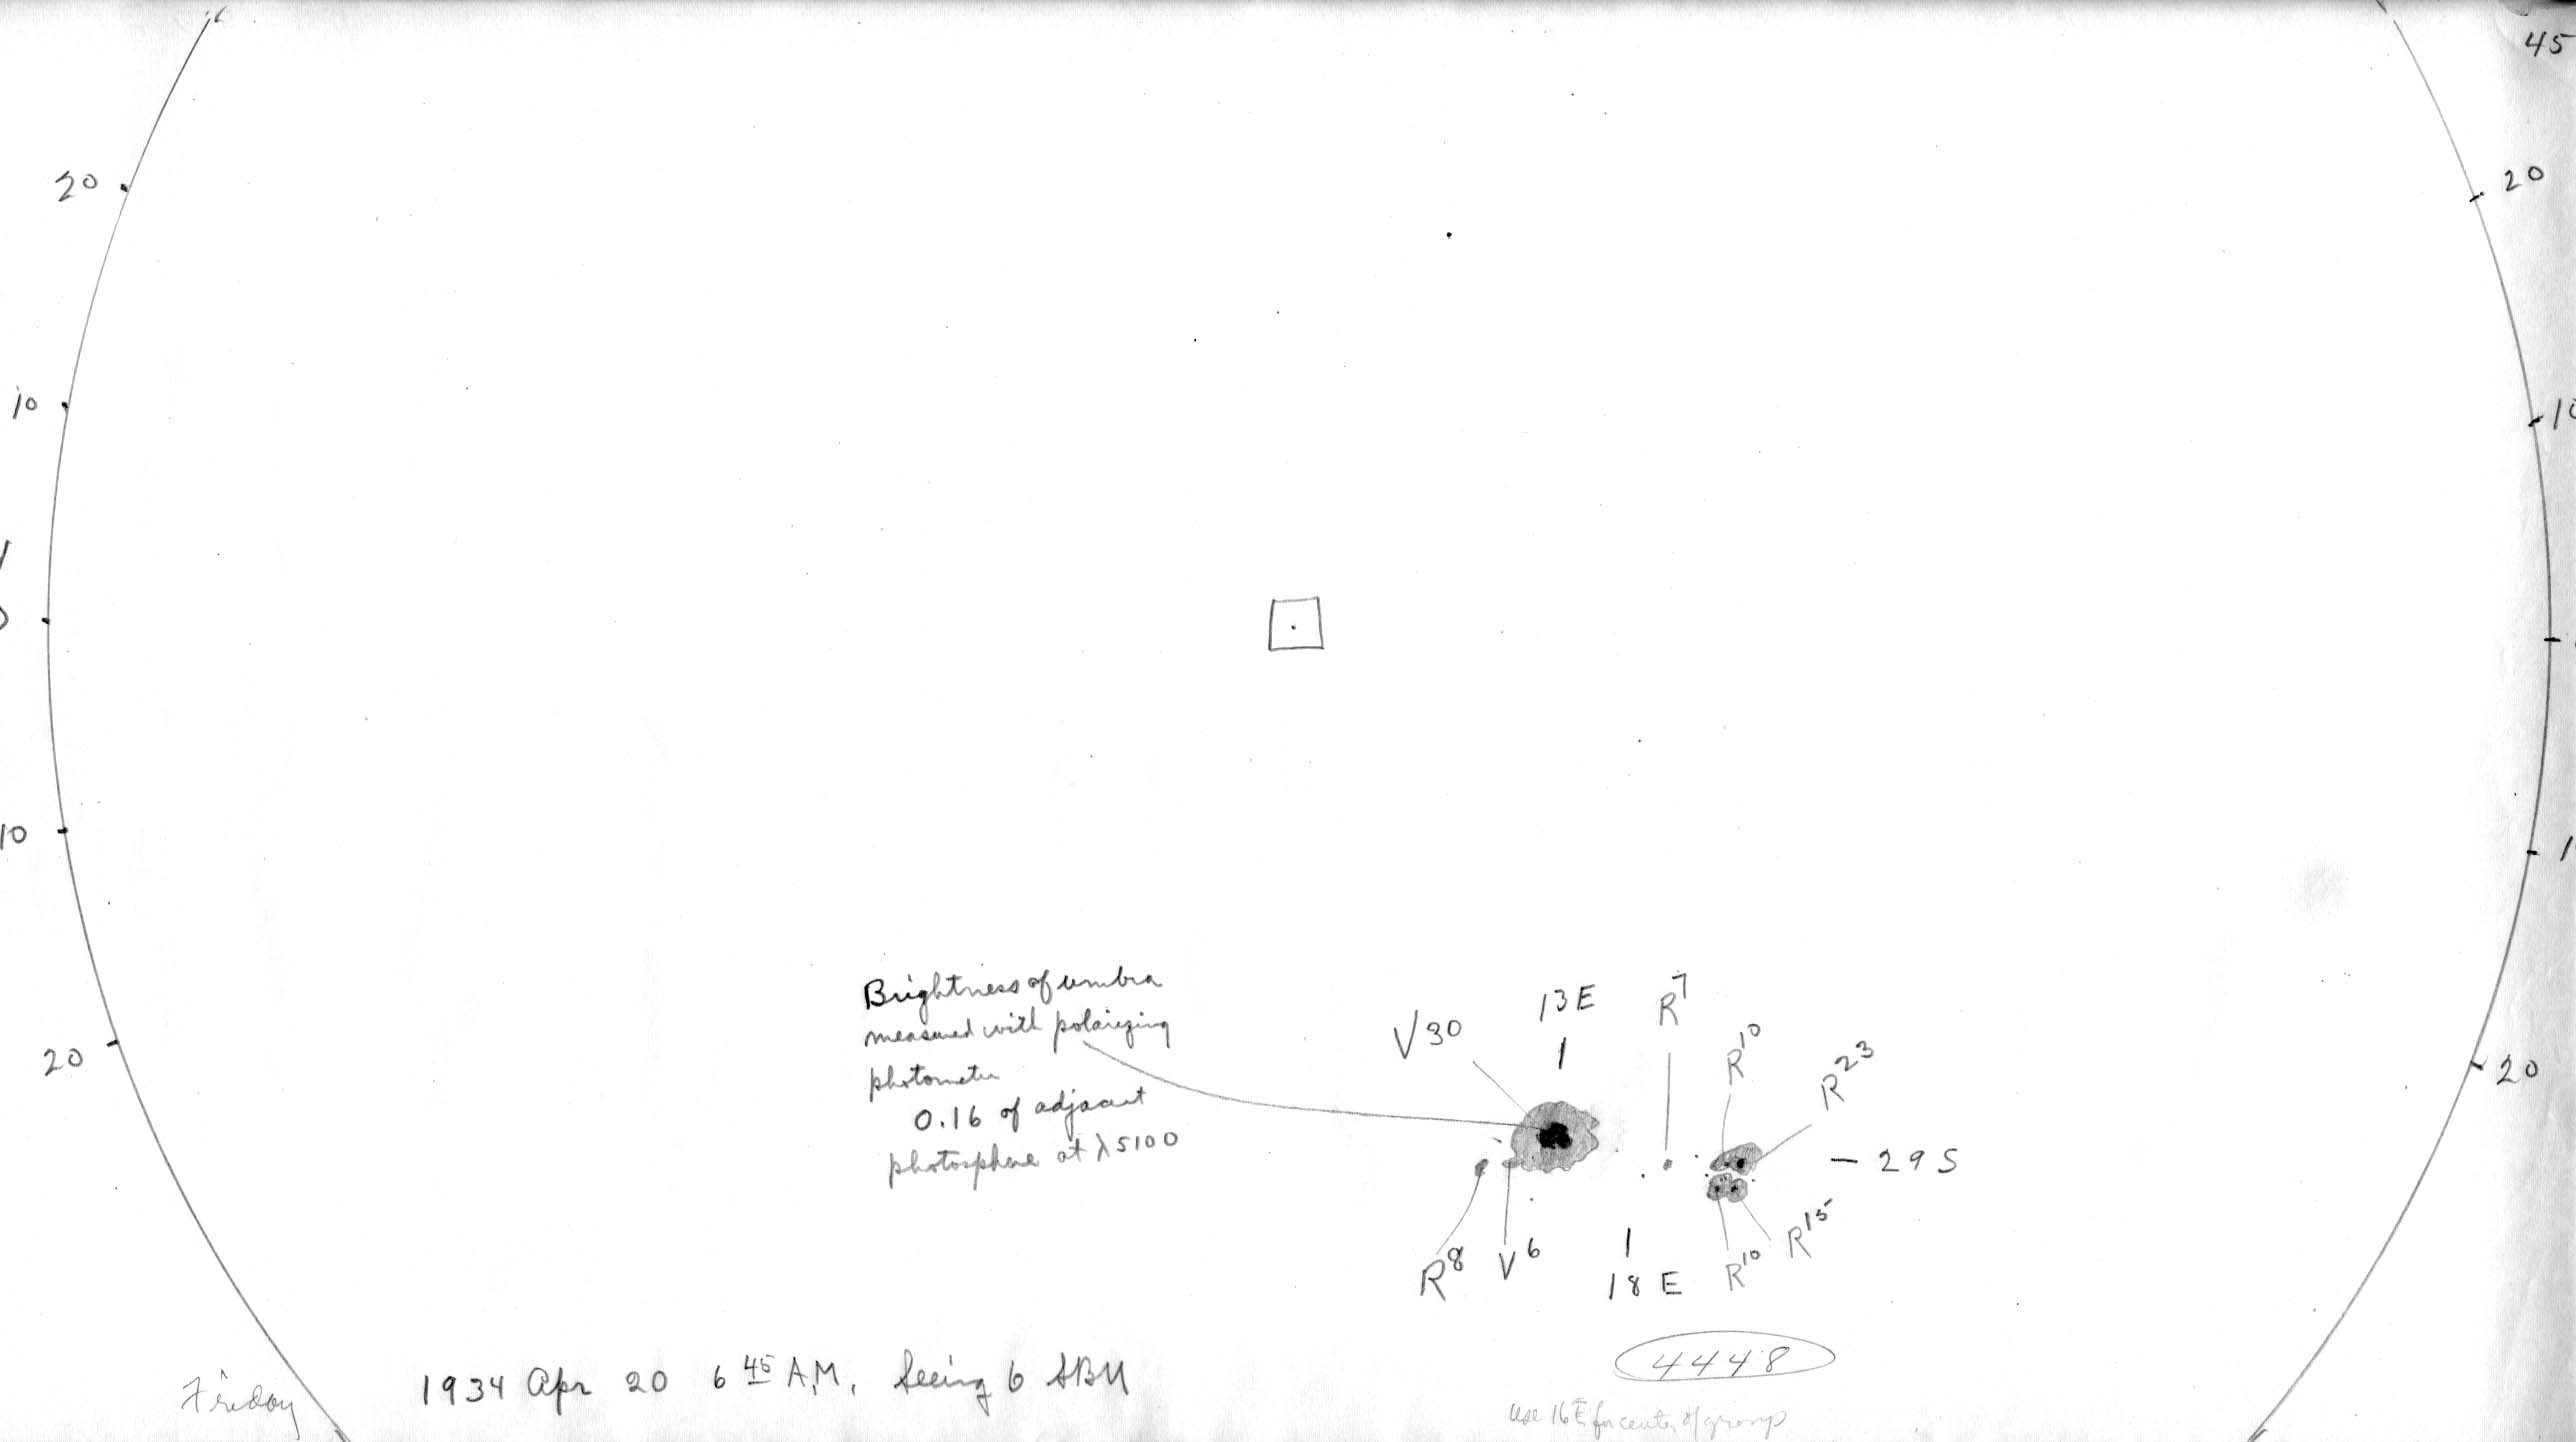 45
20
20
10
10
10
20
20
Brightness of umbra
measured with polarizing
photometer
0.16 of adjacent
photosphere at λ5100
V30
13E
R7
R10
R23
- 29 S
R8
V6
18 E
R10
R15
4448
use 16E for center of group
Friday
1934 Apr 20 6 45 A.M. Seeing 6 SBN